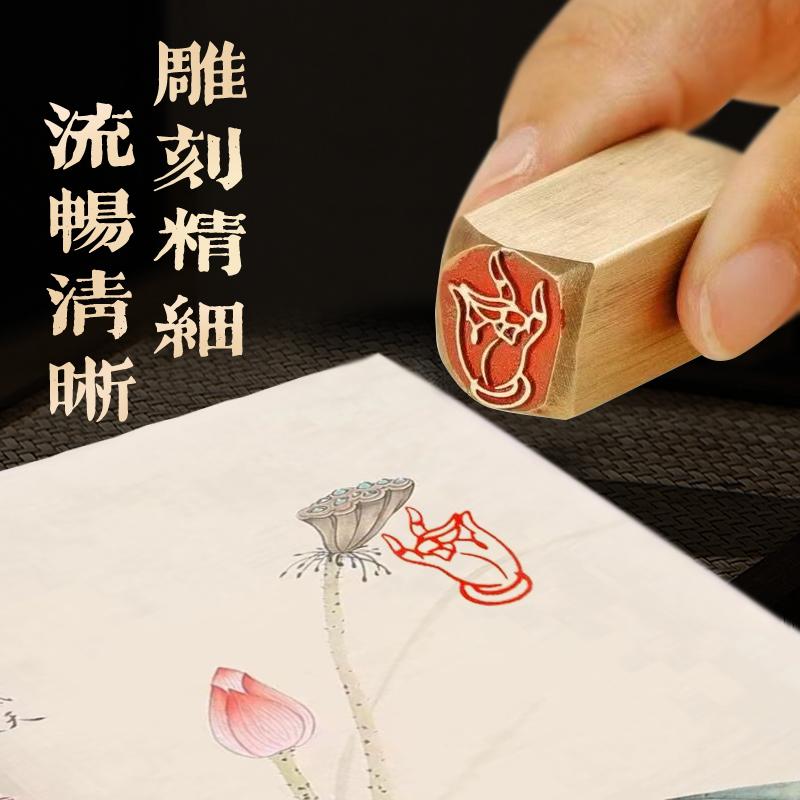 雕刻精細
流暢清晰